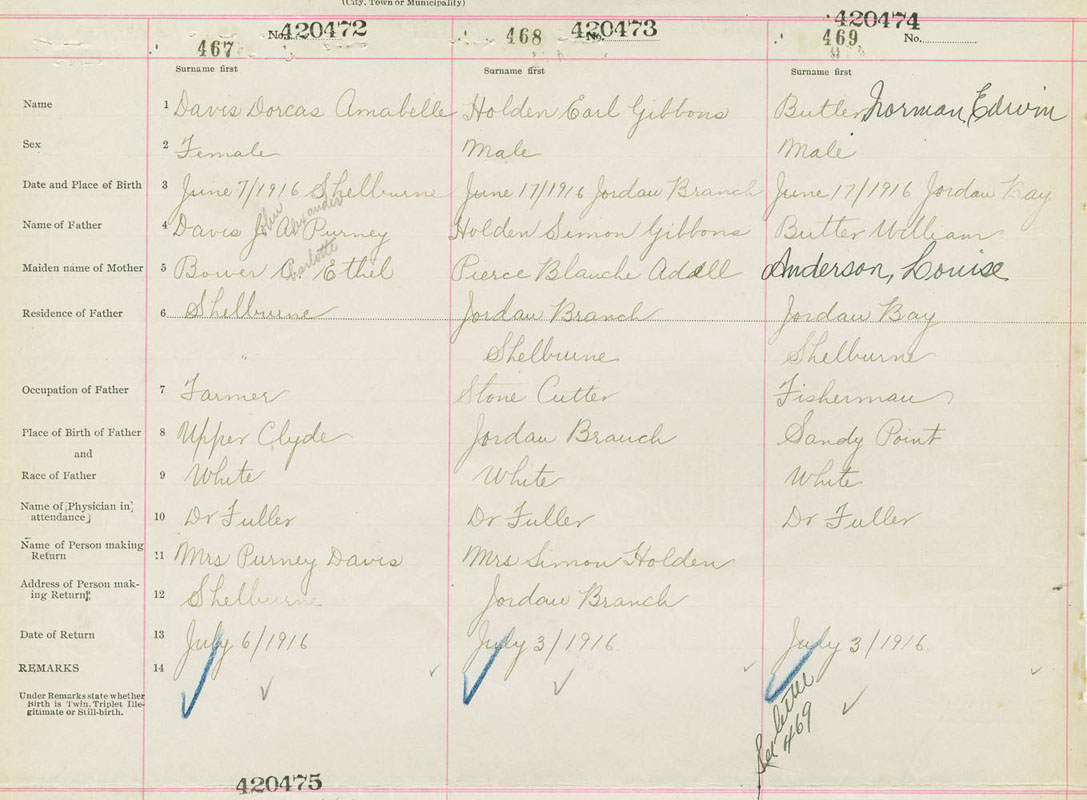 (City, Town or Municipality)
467 No. 420472 468 No. 420473 469 420474 No.
Surname first Surname first Surname first
Name 1 Davis Dorcas Amabelle Holden Earl Gibbons Butler Norman, Edwin
Sex 2 Female Male Male
Date and Place of Birth 3 June 7/1916 Shelburne June 17/1916 Jordan Branch June 17/1916 Jordan Bay
John Alexander
Name of Father 4 Davis J. A. Purney Holden Simon Gibbons Butler William
Charlotte
Maiden name of Mother 5 Bower C. Ethel Pierce Blanche Adell Anderson, Louise
Residence of Father 6 Shelburne Jordan Branch Jordan Bay
" Shelburne Shelburne
Occupation of Father 7 Farmer Stone Cutter Fisherman
Place of Birth of Father 8 Upper Clyde Jordan Branch Sandy Point
and
Race of Father 9 White White White
Name of [Physician in
attendance] 10 Dr Fuller Dr Fuller Dr Fuller
Name of Person making
Return 11 Mrs Purney Davis Mrs Simon Holden
Address of Person mak-
ing Return 12 Shelburne Jordan Branch
Date of Return 13 July 6/1916 July 3/1916 July 3/1916
REMARKS 14
Under Remarks state whether
Birth is Twin, Triplet Ille-
gitimate or Still-birth.
See letter
469
420475